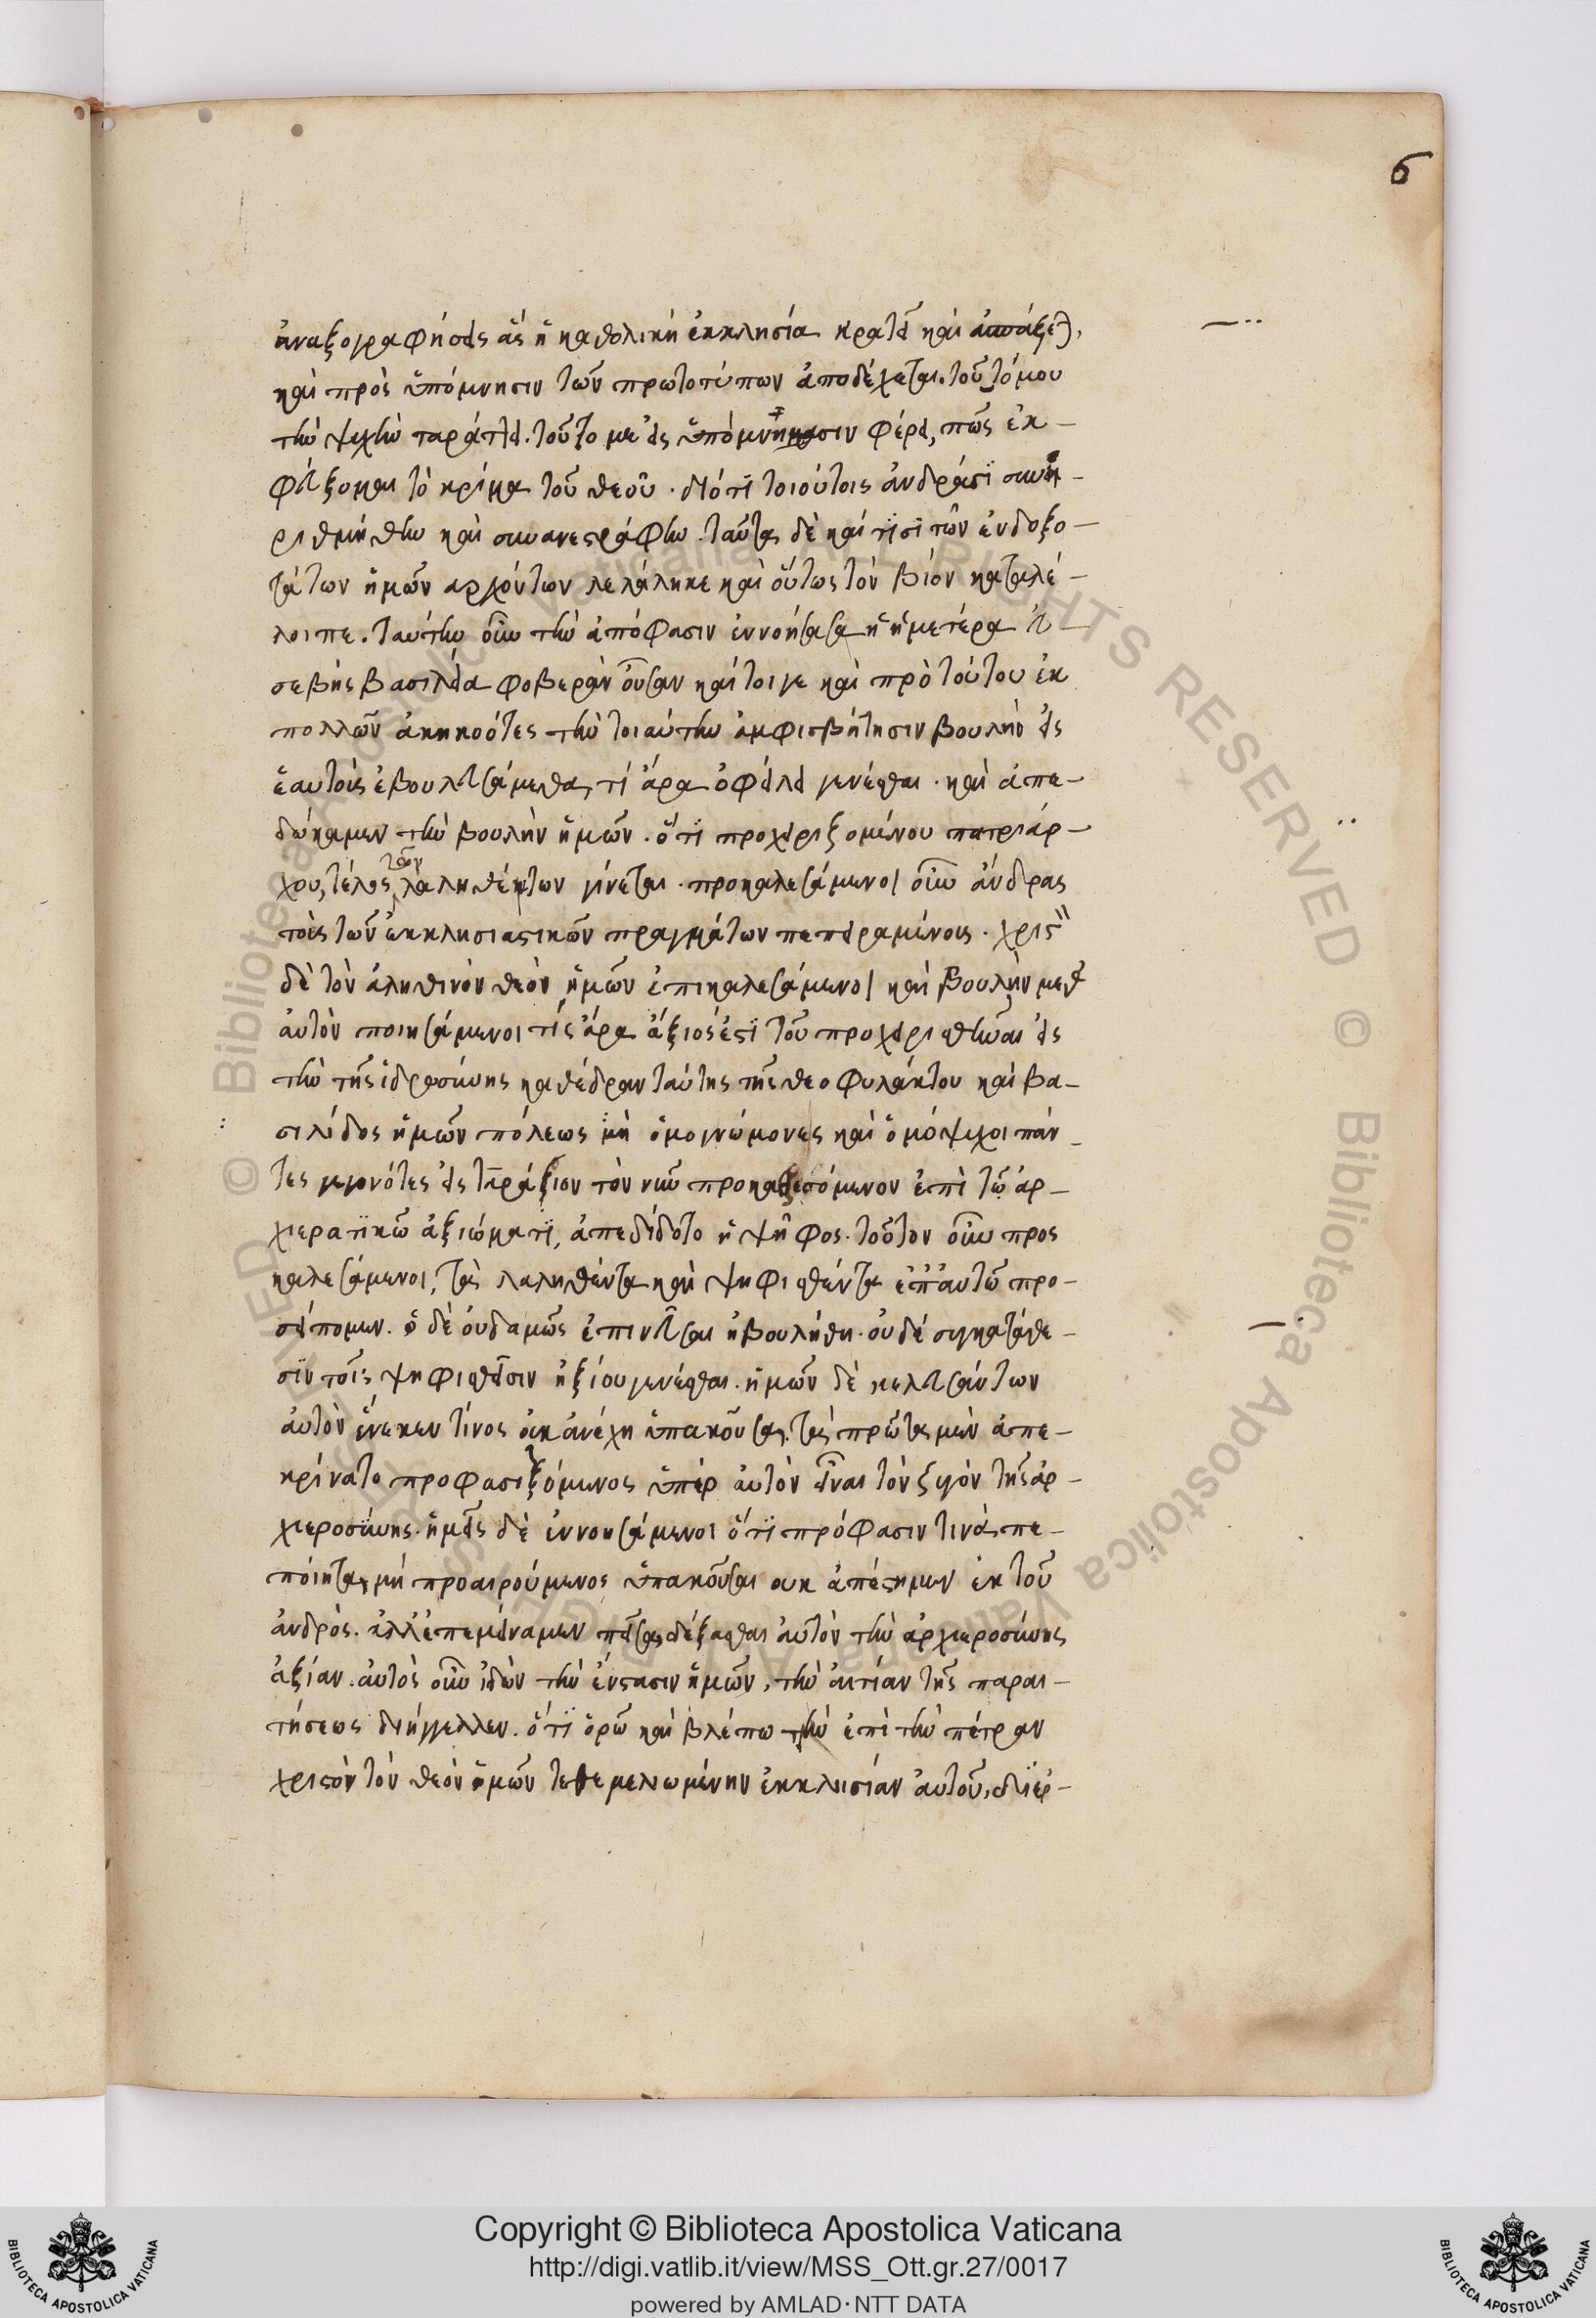 6
ἀναζογραφήσεις ἃς ἡ καθολικὴ ἐκκλησία κρατεῖ καὶ
καὶ πρὸς ὑπόμνησιν τῶν πρωτοτύπων ἀποδέχεται. τοῦτό μου
τὴν ψυχὴν ταράττει. τοῦτο με εἰς ὑπόμνησιν φέρει, πῶς ἐκ-
φεύξομαι τὸ κρίμα τοῦ θεοῦ. διότι τοιούτοις ἀνδράσι συνη-
ριθμήθην καὶ συνανεστράφην. ταῦτα δὲ καί τισι τῶν ἐνδοξο-
τάτων ἡμῶν αρχόντων λελάληκε καὶ οὕτως τὸν βίον καταλέ-
λοιπε. ταύτην οὖν τὴν ἀπόφασιν ἐννοήσασα ἡ ἡμετέρα εὐ-
σεβὴς βασιλεία φοβερὰν οὖσαν καίτοιγε καὶ πρὸ τούτου ἐκ
πολλῶν ἀκηκοότες τὴν τοιαύτην ἀμφισβήτησιν βουλὴν εἰς
ἑαυτοὺς ἐβουλευσάμεθα, τί ἄρα ὀφείλει γενέσθαι. καὶ ἀπε-
δώκαμεν τὴν βουλὴν ἡμῶν. ὅτι προχειριζομένου πατριάρ-
χου, τέλος τῶν λαληθέντων γίνεται. προσκαλεσάμενοι οὖν ἄνδρας
τοὺς τῶν ἐκκλησιαστικῶν πραγμάτων πεπειραμένους. χριστ"
δὲ τὸν ἀληθινὸν θεὸν ἡμῶν ἐπικαλεσάμενοι καὶ βουλὴν μετ'
αὐτὸν ποιησάμενοι τίς ἄρα ἄξιός ἐστι τοῦ προχειρισθῆναι εἰς
τὴν τῆς ἱερωσύνης καθέδραν ταύτης τῆς θεοφυλάκτου καὶ βα-
σιλίδος ἡμῶν πόλεως μὴ ὁμογνώμονες καὶ ὁμόψυχοι πάν-
τες γεγονότες εἰς ταράξιον τὸν νῦν προκαθεσόμενον ἐπὶ τῶ ἀρ-
χιερατικῶ ἀξιώματι, ἀπεδίδοτο ἡ ψῆφος. τοῦτον οὖν προσ
καλεσάμενοι, τὰ λαληθέντα καὶ ψηφισθέντα ἐπ' αὐτῶ προ-
σείπομεν. ὁ δὲ οὐδαμῶς ἐπινεῦσαι ἠβουλήθη. οὐδέ συγκατάθε-
σιν τοῖς ψηφισθεῖσιν ἠξίου γενέσθαι. ἡμῶν δὲ κελευσάντων
αὐτὸν ἕνεκεν τίνος οὐκ ἀνέχη ὑπακοῦσαι. τὰ πρῶτα μὲν ἀπε-
κρίνατο προφασιζόμενος ὑπὲρ αὐτὸν εἶναι τὸν ζυγὸν τῆς ἀρ-
χιεροσύνης. ἡμεῖς δὲ ἐννοησάμενοι ὅτι πρόφασιν τινὰ πε-
ποίηται, μὴ προαιρούμενος ὑπακοῦσαι ουκ ἀπέστημεν ἐκ τοῦ
ἀνδρὸς. ἀλλ' ἐπεμείναμεν πεῖσαι δέξασθαι αὐτὸν τὴν ἀρχιεροσύνης
ἀξίαν. αὐτὸς οὖν ἰδὼν τὴν ἔνστασιν ἡμῶν, τὴν αἰτίαν τῆς παραι-
τήσεως διήγγελλεν. ὅτι ὁρῶ καὶ βλέπω τὴν ἐπὶ τὴν πέτραν
χριστὸν τὸν θεὸν ἡμῶν τεθεμελιωμένην ἐκκλησίαν αὐτοῦ, διερ-
© Biblioteca Apostolica Vaticana ALL RIGHTS RESERVED © Biblioteca Apostolica Vaticana ALL RIGHTS RESERVED
BIBLIOTECA APOSTOLICA VATICANA
Copyright © Biblioteca Apostolica Vaticana
http://digi.vatlib.it/view/MSS_Ott.gr.27/0017
powered by AMLAD·NTT DATA
BIBLIOTECA APOSTOLICA VATICANA